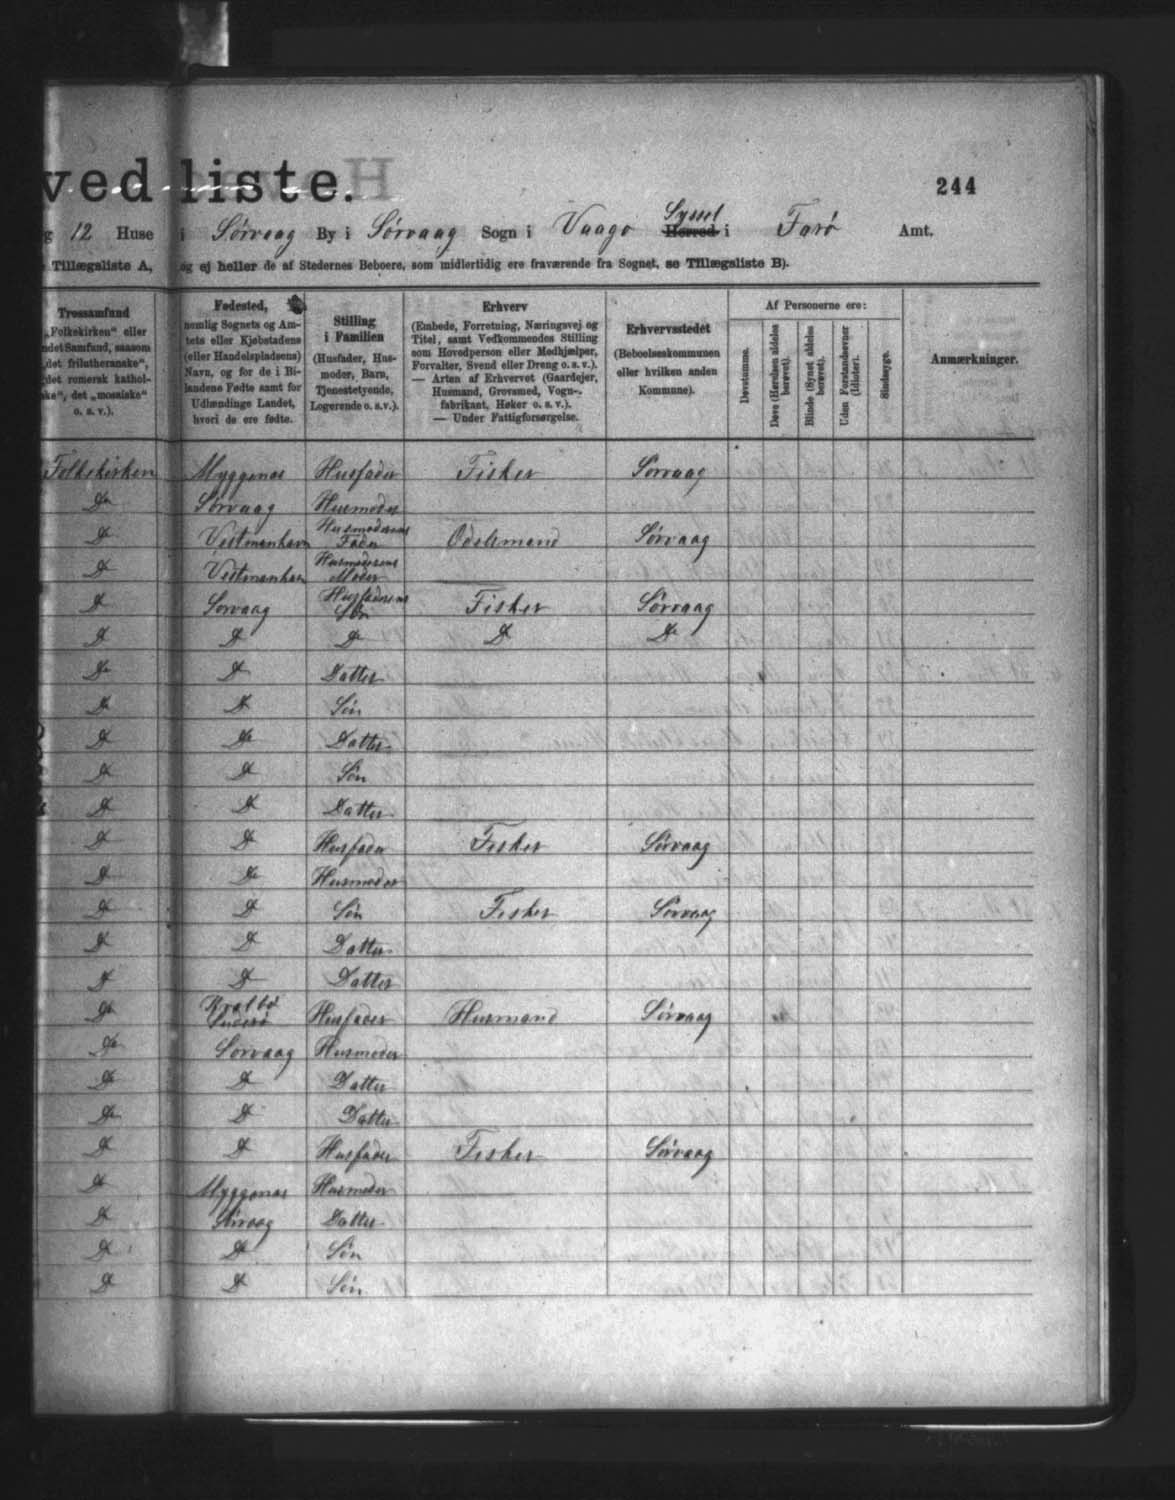 ved liste.
244
12 Huse i Sørvaag By i Sørvaag Sogn i Vaagø Syssel Herred i Færø Amt.
Tillægsliste A, og ej heller de af Stedernes Beboere, som midlertidig ere fraværende fra Sognet, se Tillægsliste B).
Trossamfund
„Folkekirken" eller
ndet Samfund, saasom
„det frilutheranske",
„det romersk kathol-
ske", det „mosaiske"
o. s. v.).
Fødested,
nemlig Sognets og Am-
tets eller Kjøbstadens
(eller Handelspladsens)
Navn, og for de i Bi-
landene Fødte samt for
Udlændinge Landet,
hvori de ere fødte.
Stilling
i Familien
(Husfader, Hus-
moder, Barn,
Tjenestetyende,
Logerende o. s. v.).
Erhverv
(Embede, Forretning, Næringsvej og
Titel, samt Vedkommendes Stilling
som Hovedperson eller Medhjælper,
Forvalter, Svend eller Dreng o. s. v.).
— Arten af Erhvervet (Gaardejer,
Husmand, Grovsmed, Vogn-
fabrikant, Høker o. s. v.).
— Under Fattigforsørgelse.
Erhvervsstedet
(Beboelseskommunen
eller hvilken anden
Kommune).
Af Personerne ere:
Døvstumme.
Døve (Hørelsen aldeles
berøvet).
Blinde (Synet aldeles
berøvet).
Uden Forstandsevner
(Idioter).
Sindssyge.
Anmærkninger.
Folkekirken Myggenæs Husfader Fisker Sørvaag
Do Sørvaag Husmoder
Do Vestmanhavn Husmoderens Fader Odelsmand Sørvaag
Do Vestmanhavn Husmoderens Moder
Do Sørvaag Husfaderens Søn Fisker Sørvaag
Do Do Do Do Do
Do Do Datter
Do Do Søn
Do Do Datter
Do Do Søn
Do Do Datter
Do Do Husfader Fisker Sørvaag
Do Do Husmoder
Do Do Søn Fisker Sørvaag
Do Do Datter
Do Do Datter
Do Kvalbø Suderø Husfader Husmand Sørvaag
Do Sørvaag Husmoder
Do Do Datter
Do Do Datter
Do Do Husfader Fisker Sørvaag
Do Myggenæs Husmoder
Do Sørvaag Datter
Do Do Søn
Do Do Søn